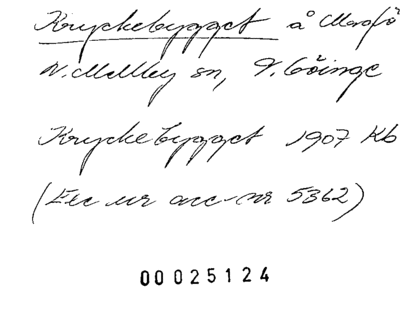 Kryckebygget å Maglö
N. Mellby sn, V. Göinge
Kryckebygget 1907 Kb
(Exc ur acc-nr 5362)
00025124